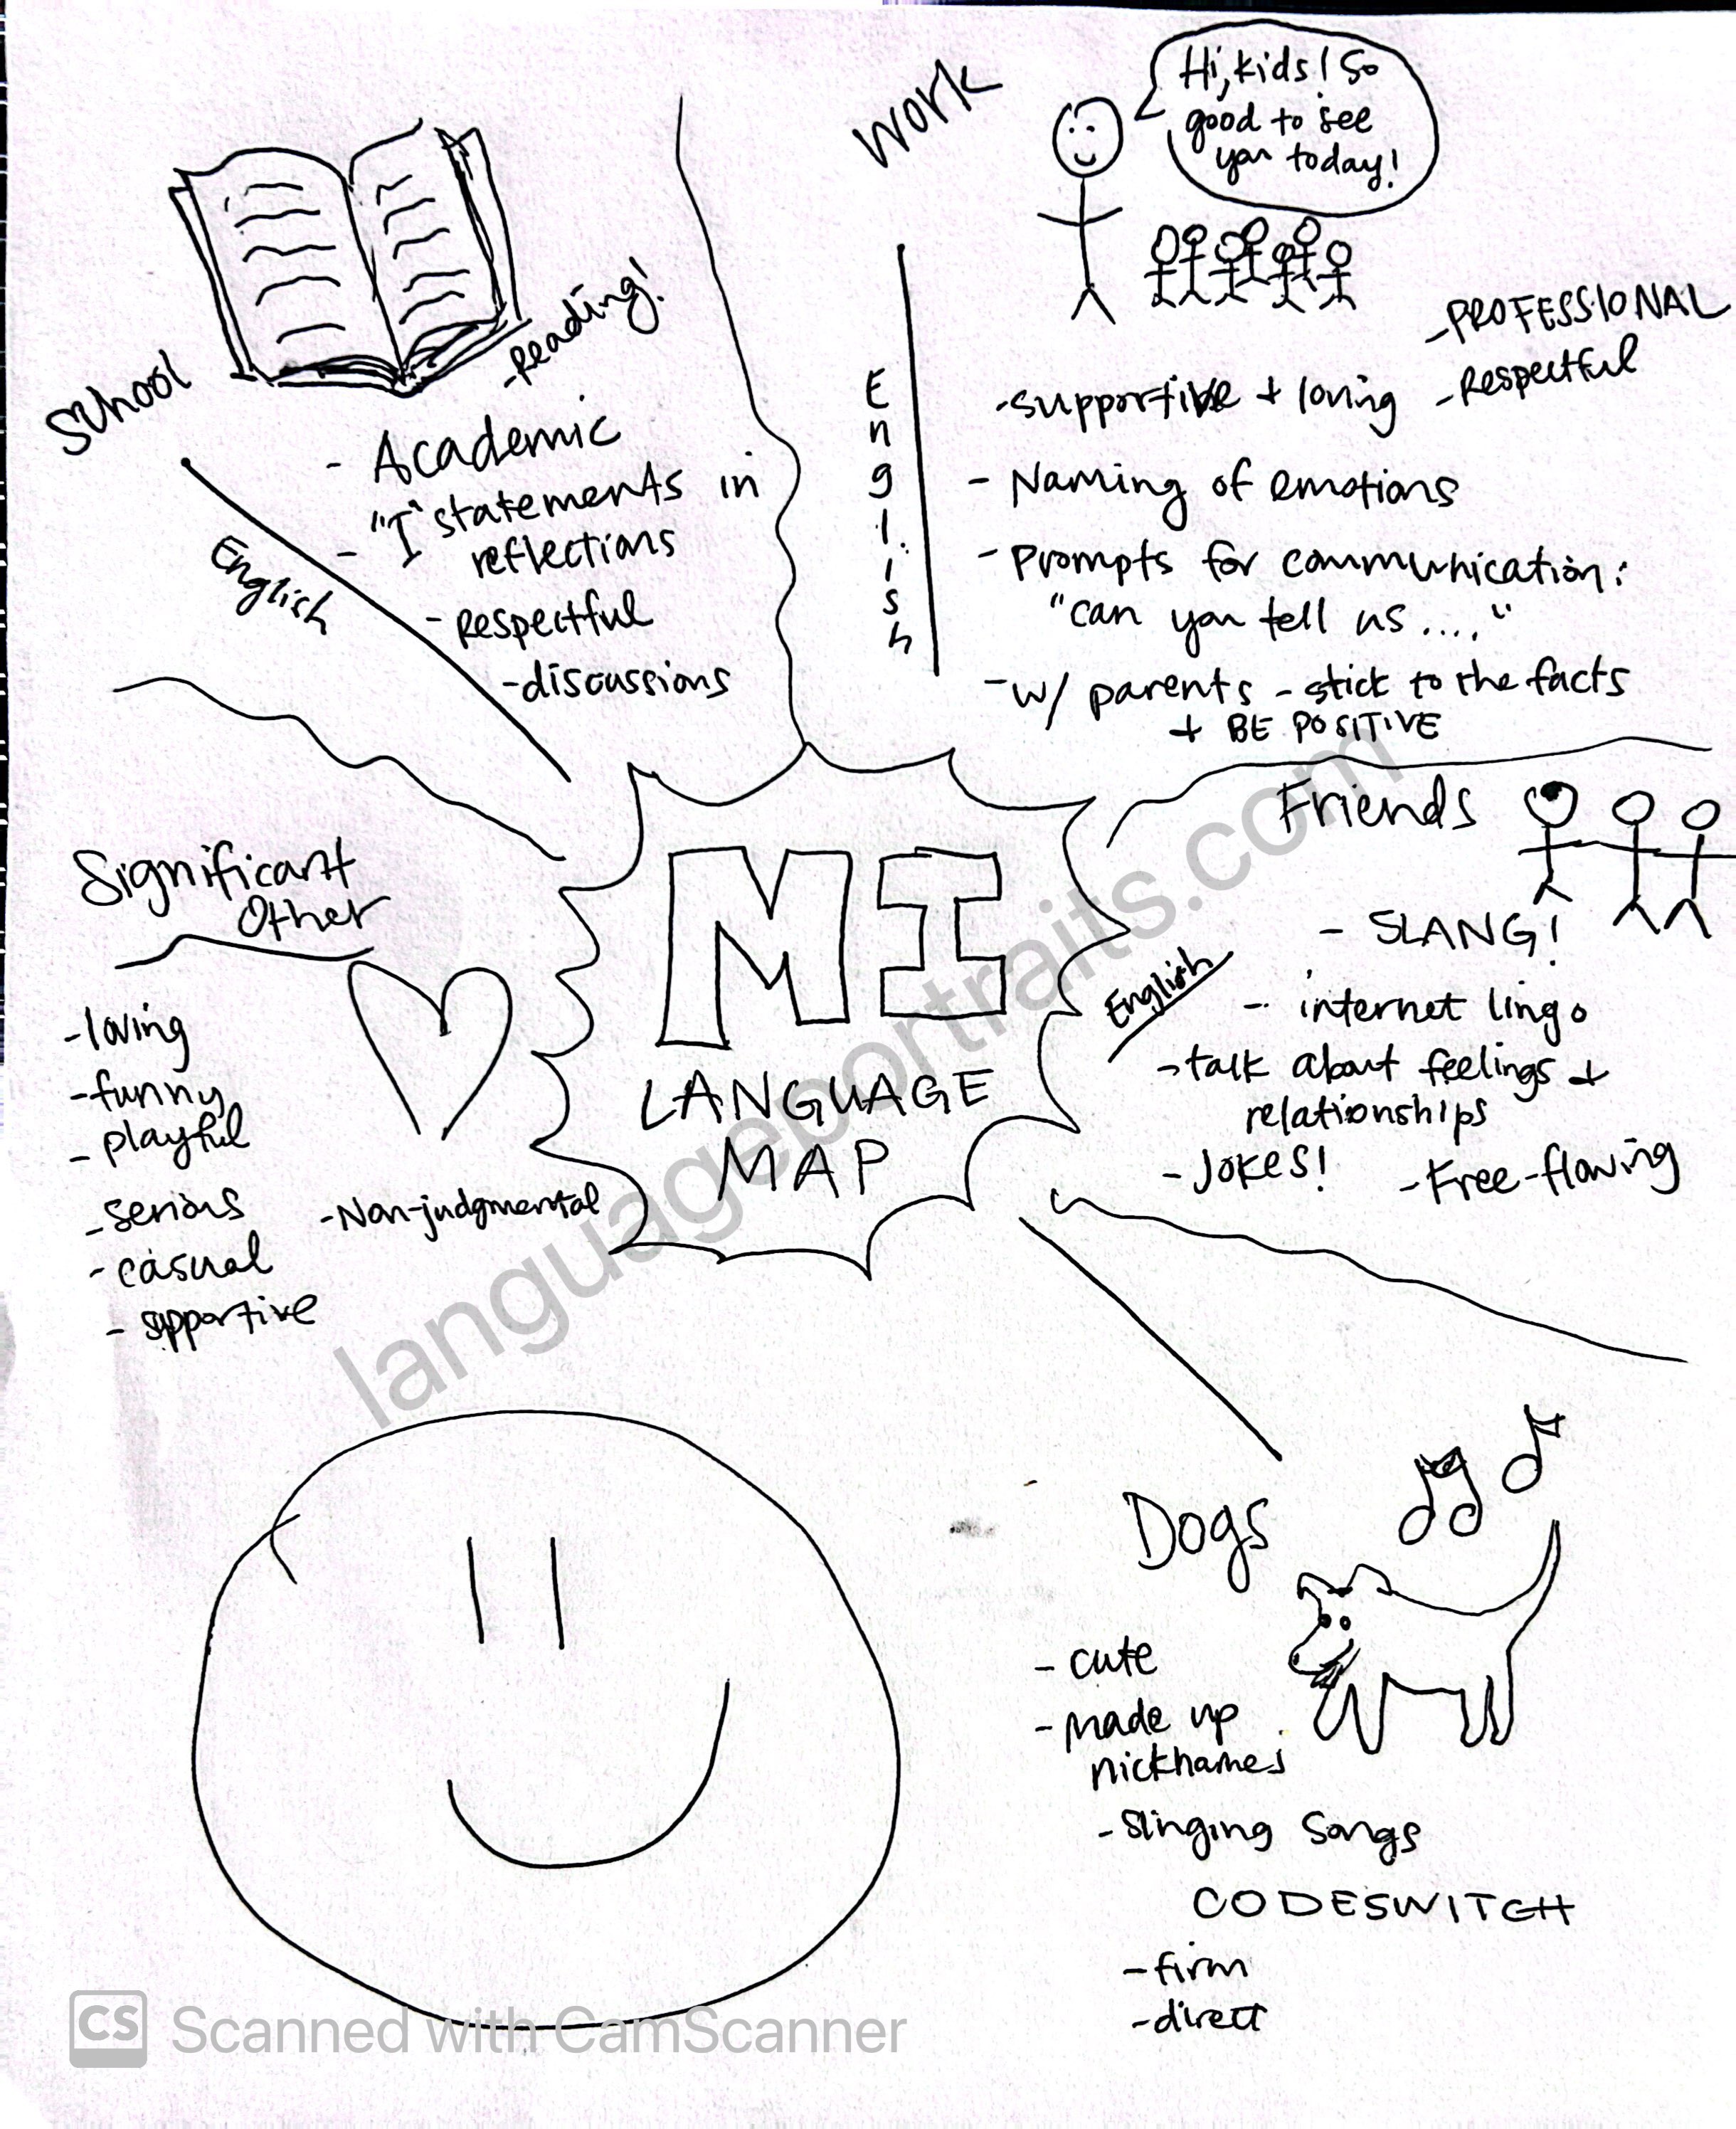 School
English
- Reading!
- Academic
- "I" statements in
reflections
- Respectful
- discussions
Work
Hi, kids! So
good to see
you today!
English
- PROFESSIONAL
- Respectful
- supportive + loving
- Naming of emotions
- Prompts for communication:
"can you tell us ...."
- w/ parents - stick to the facts
+ BE POSITIVE
Significant
Other
- loving
- funny
- playful
- serious
- Non-judgmental
- casual
- spportive
MI
LANGUAGE
MAP
Friends
English
- SLANG!
- internet lingo
- talk about feelings +
relationships
- JOKES!
- Free-flowing
Dogs
- cute
- made up
nicknames
- Singing Songs
CODESWITCH
- firm
- direct
languageportraits.com
CS Scanned with CamScanner